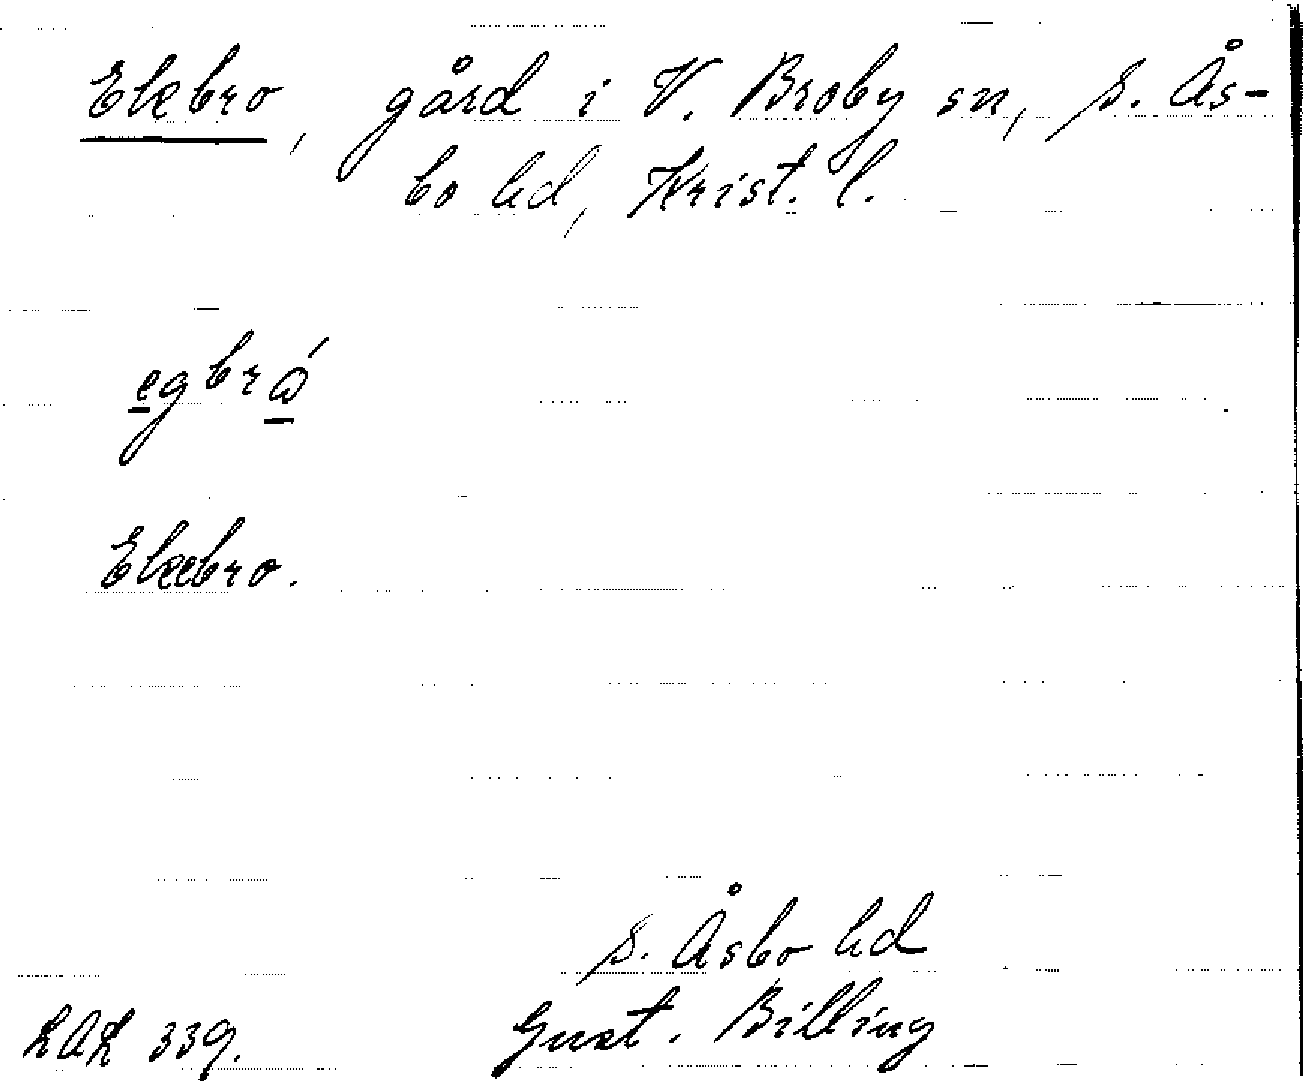 Ekebro, gård i V. Broby sn, S. Ås-
bo hd, Krist. l.
egbró
Ekebro.
S. Åsbo hd
LAL 339.
Gust. Billing